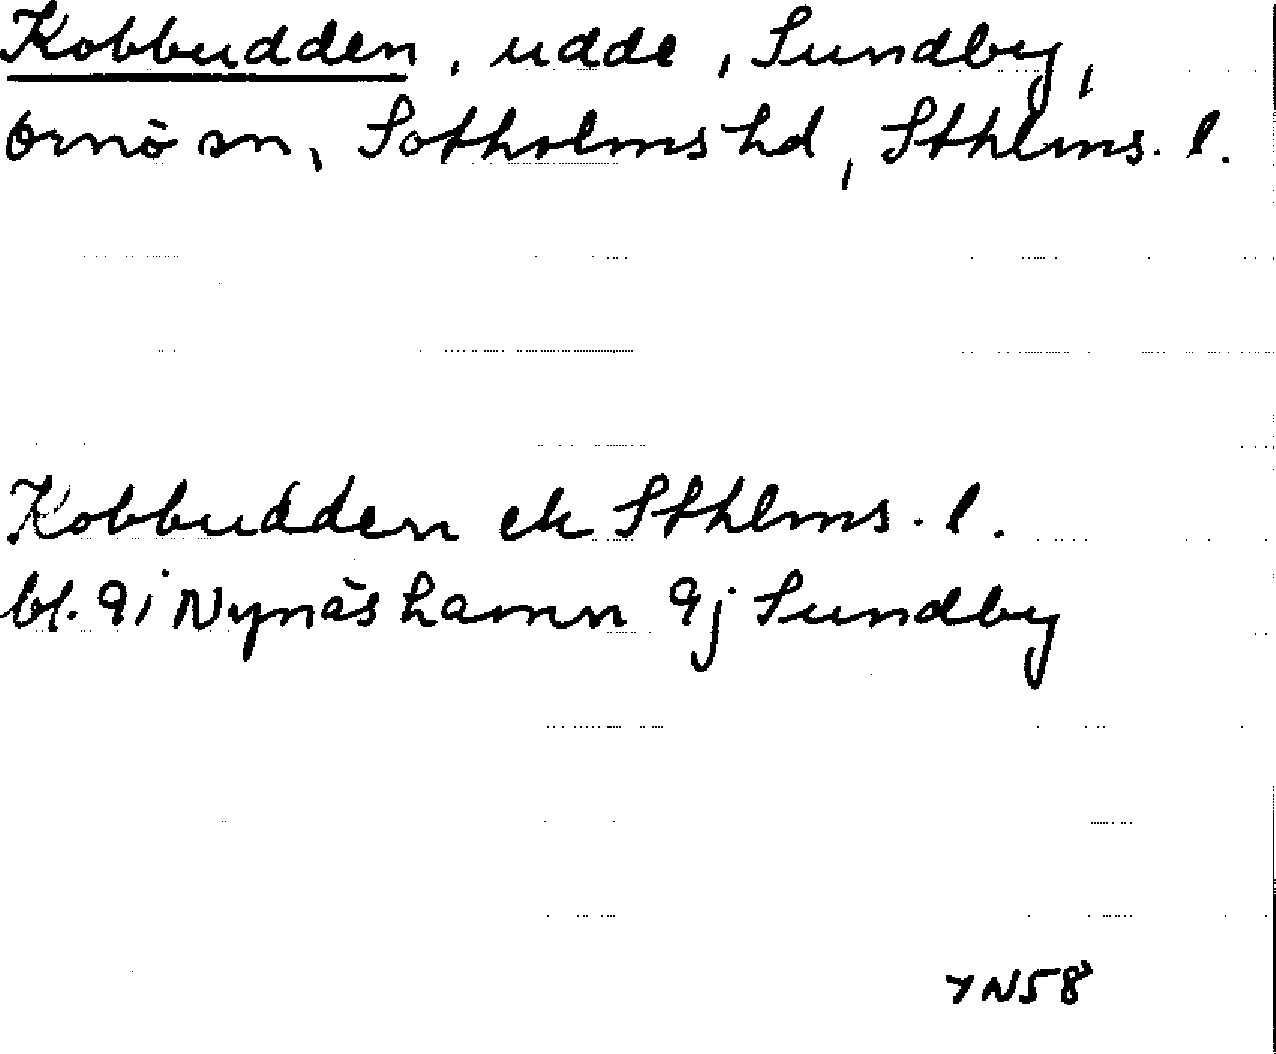 Kobbudden, udde, Sundby,
Ornö sn, Sotholms hd, Sthlms. l.
Kobbudden ek Sthlms. l.
bl. 9i Nynäshamn 9j Sundby
YN58